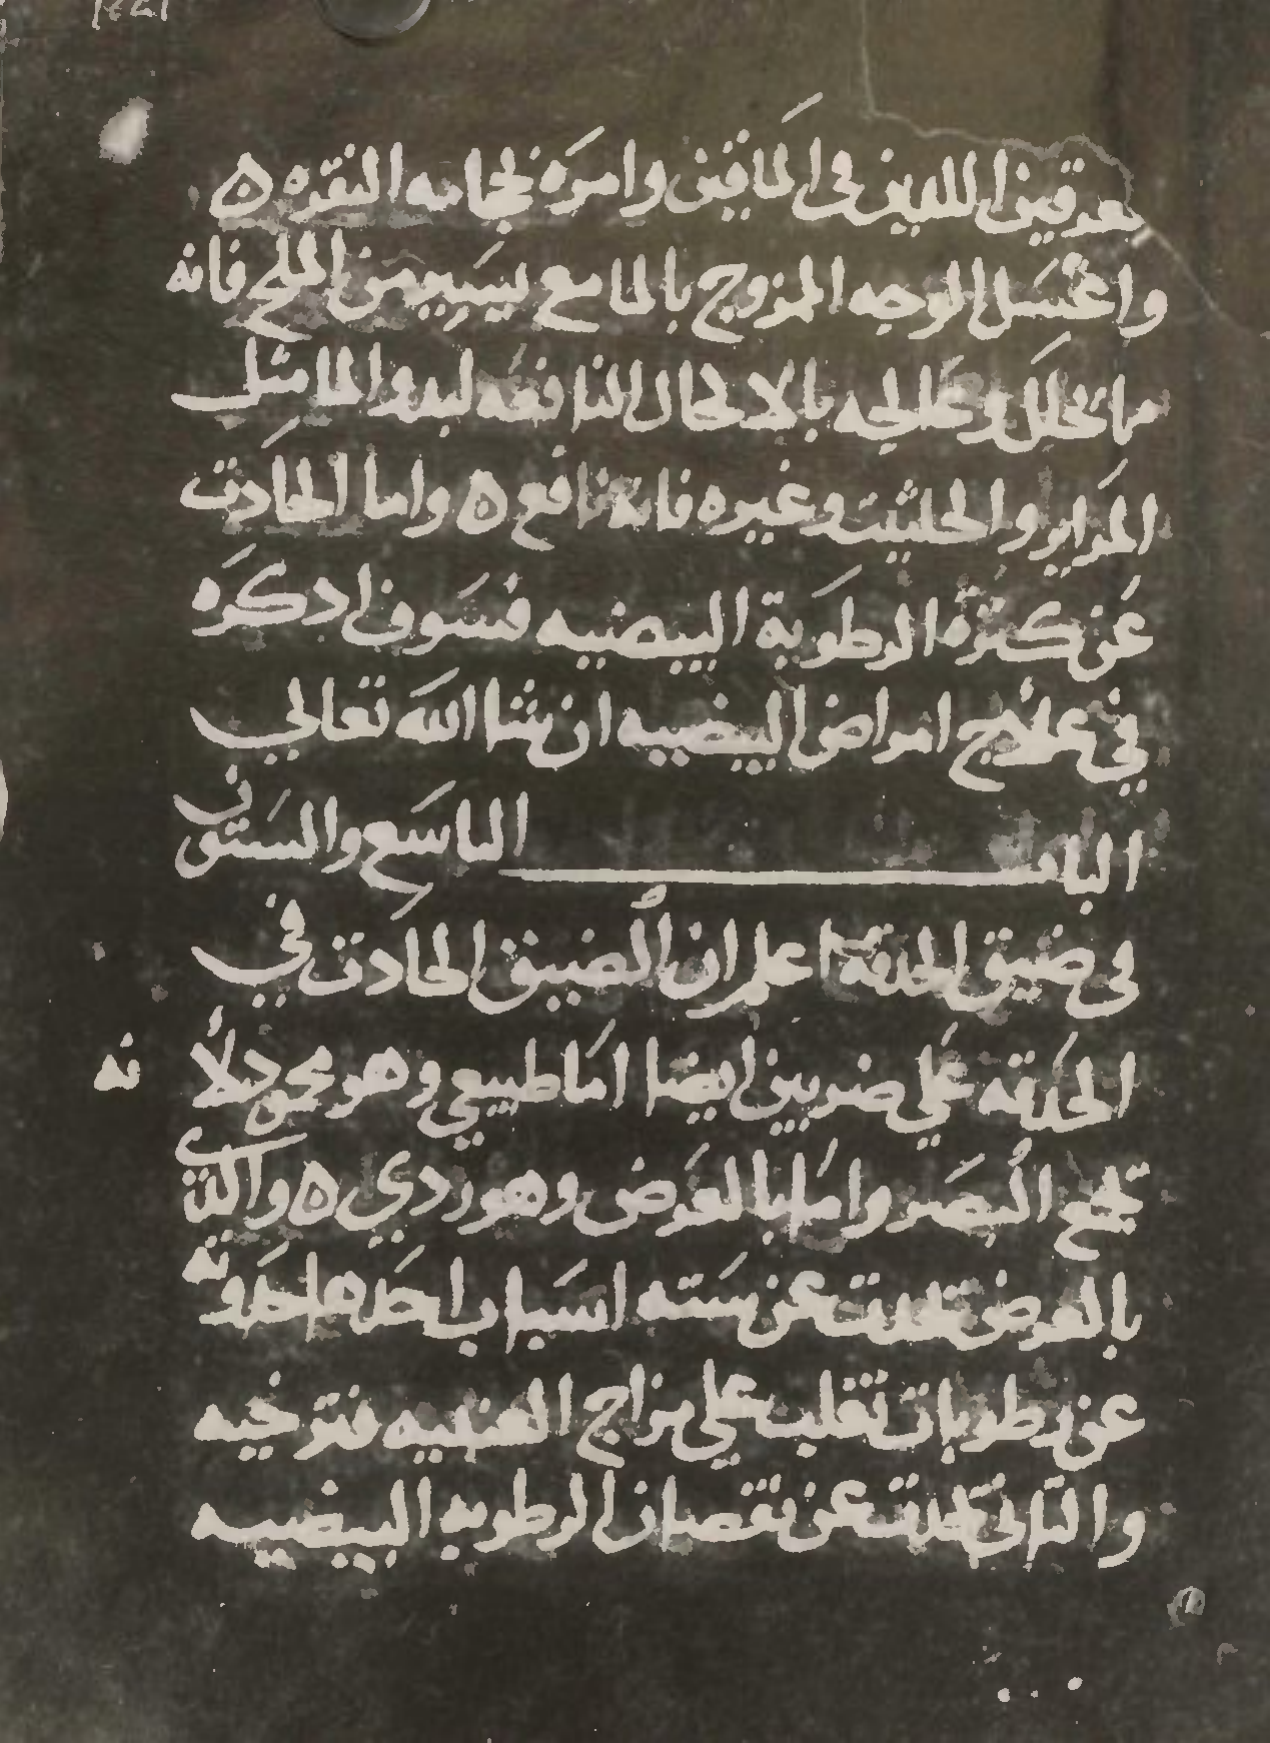 العرقين اللدين في الماقين وامره بحجامه النقره ٥
واغسل الوجه الممزوج بالما مع يسير من الملح فانه
مما تحلل وعالجه بالاكحال النافعه لبدو الما مثل
المراير والحلتيت وغيره فانه نافع ٥ واما الحادث
عن كثرة الرطوبة البيضيه فسوف ادكره
في علاج امراض البيضيه ان شا الله تعالي
الباب التاسع والستون
في ضيق الحدقة اعلم ان الضيق الحادث في
الحدقه علي ضربين ايضا اما طبيعي وهو محمود لانه
يجمع البصر واما بالعرض وهو ردي ٥ والذي
بالعرض تحدث عن سته اسباب احدها حدوثه
عن رطوبات تغلب علي مزاج العنبيه فترخيه
والثاني تحدث عن نقصان الرطوبه البيضيه